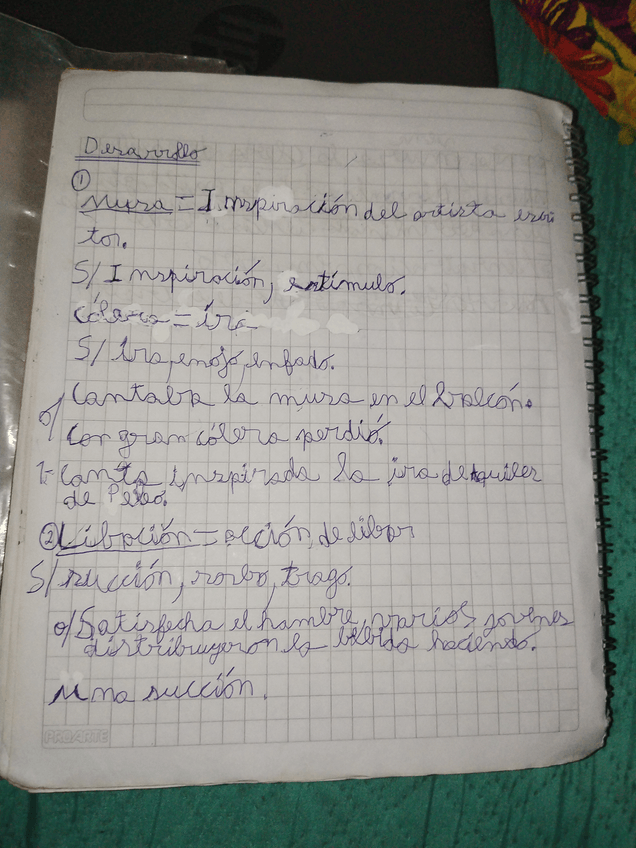 Desarrollo
①
Musa = Inspiración del artista escri
tor.
S/ Inspiración, estímulo.
Cólera = ira
S/ Ira, enojo, enfado.
Cantaba la musa en el balcón.
o/
Con gran cólera perdió.
T- Canta inspirada la ira de Aquiles
de Peleo.
② Libación = acción de libar
S/ succión, sorbo, trago.
o/ Satisfecha el hambre, varios jovenes
distribuyeron la bebida haciendo.
Una succión.
PROARTE
hp